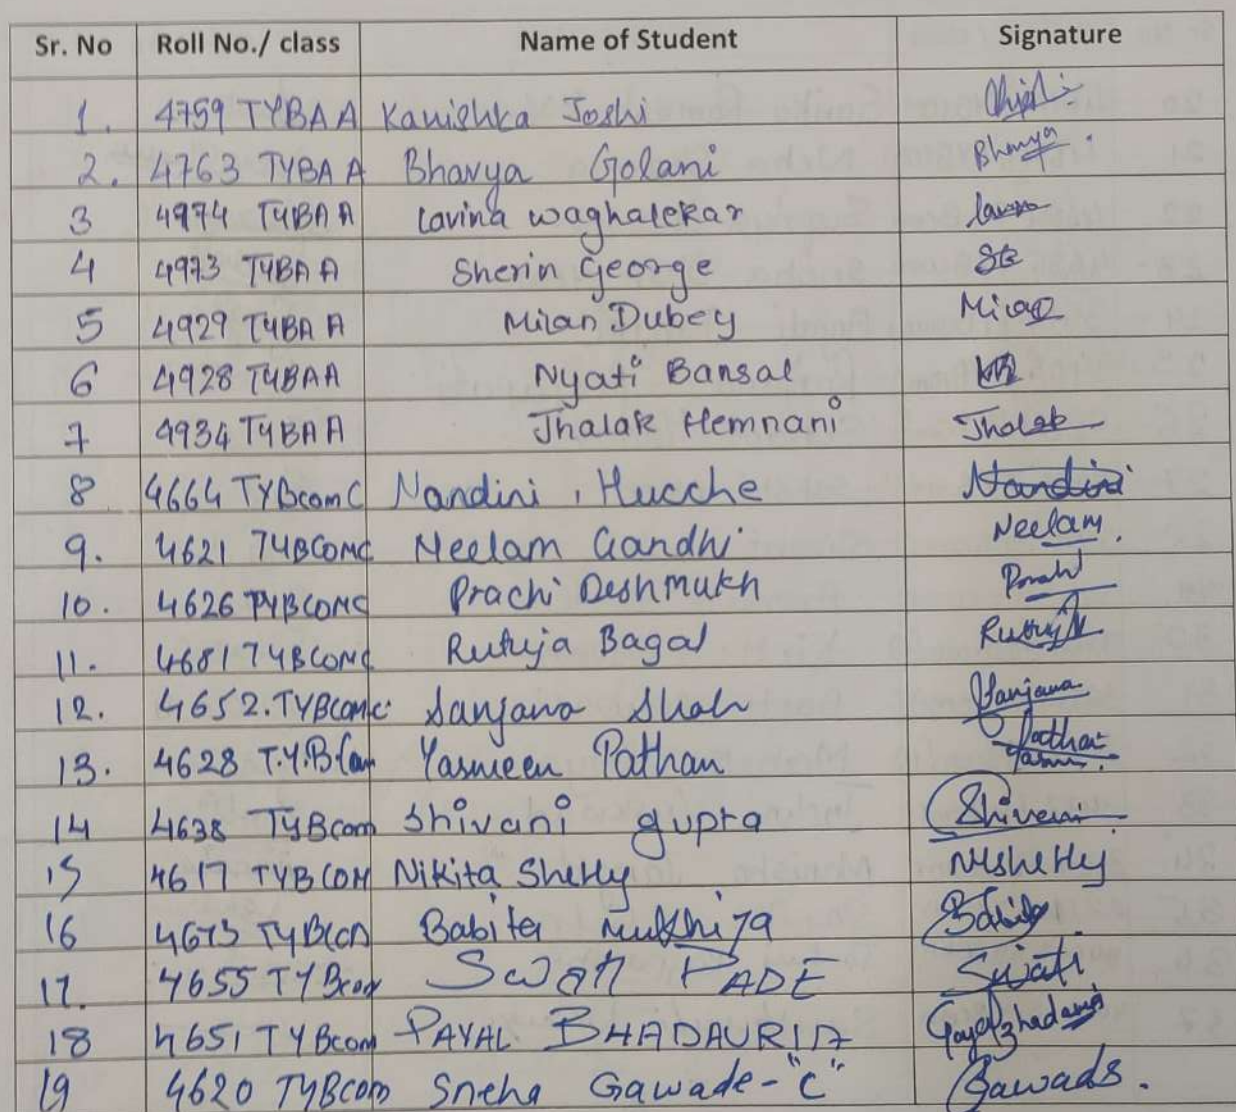 Sr. No Roll No./ class Name of Student Signature
1. 4759 TYBAA Kanishka Joshi
2. 4763 TYBAA Bhavya Golani Bhavya
3 4974 TYBAA Lavina waghalekar
4 4973 TYBAA Sherin George
5 4929 TYBAA Milan Dubey Milan
6 4928 TYBAA Nyati Bansal
7 4934 TYBAA Jhalak Hemnani Jhalak
8 4664 TYBcomC Nandini . Hucche Nandini
9. 4621 TYBCOMC Neelam Gandhi Neelam.
10. 4626 TYBCOMC Prachi Deshmukh
11. 4681 TYBCOMC Rutuja Bagal
12. 4652. TYBComC Sanjana Shah Sanjana
13. 4628 T.Y.B.Com Yasmeen Pathan Pathan
14 4638 TYBcom Shivani gupta Shivani
15 4617 TYBCOM Nikita Shetty NShetty
16 4673 TYBCOM Babita Mukhiya
17. 4655 TYBcom Swati PADE Swati
18 4651 TYBcom PAYAL BHADAURIA
19 4620 TYBcom Sneha Gawade-"C" Gawade.